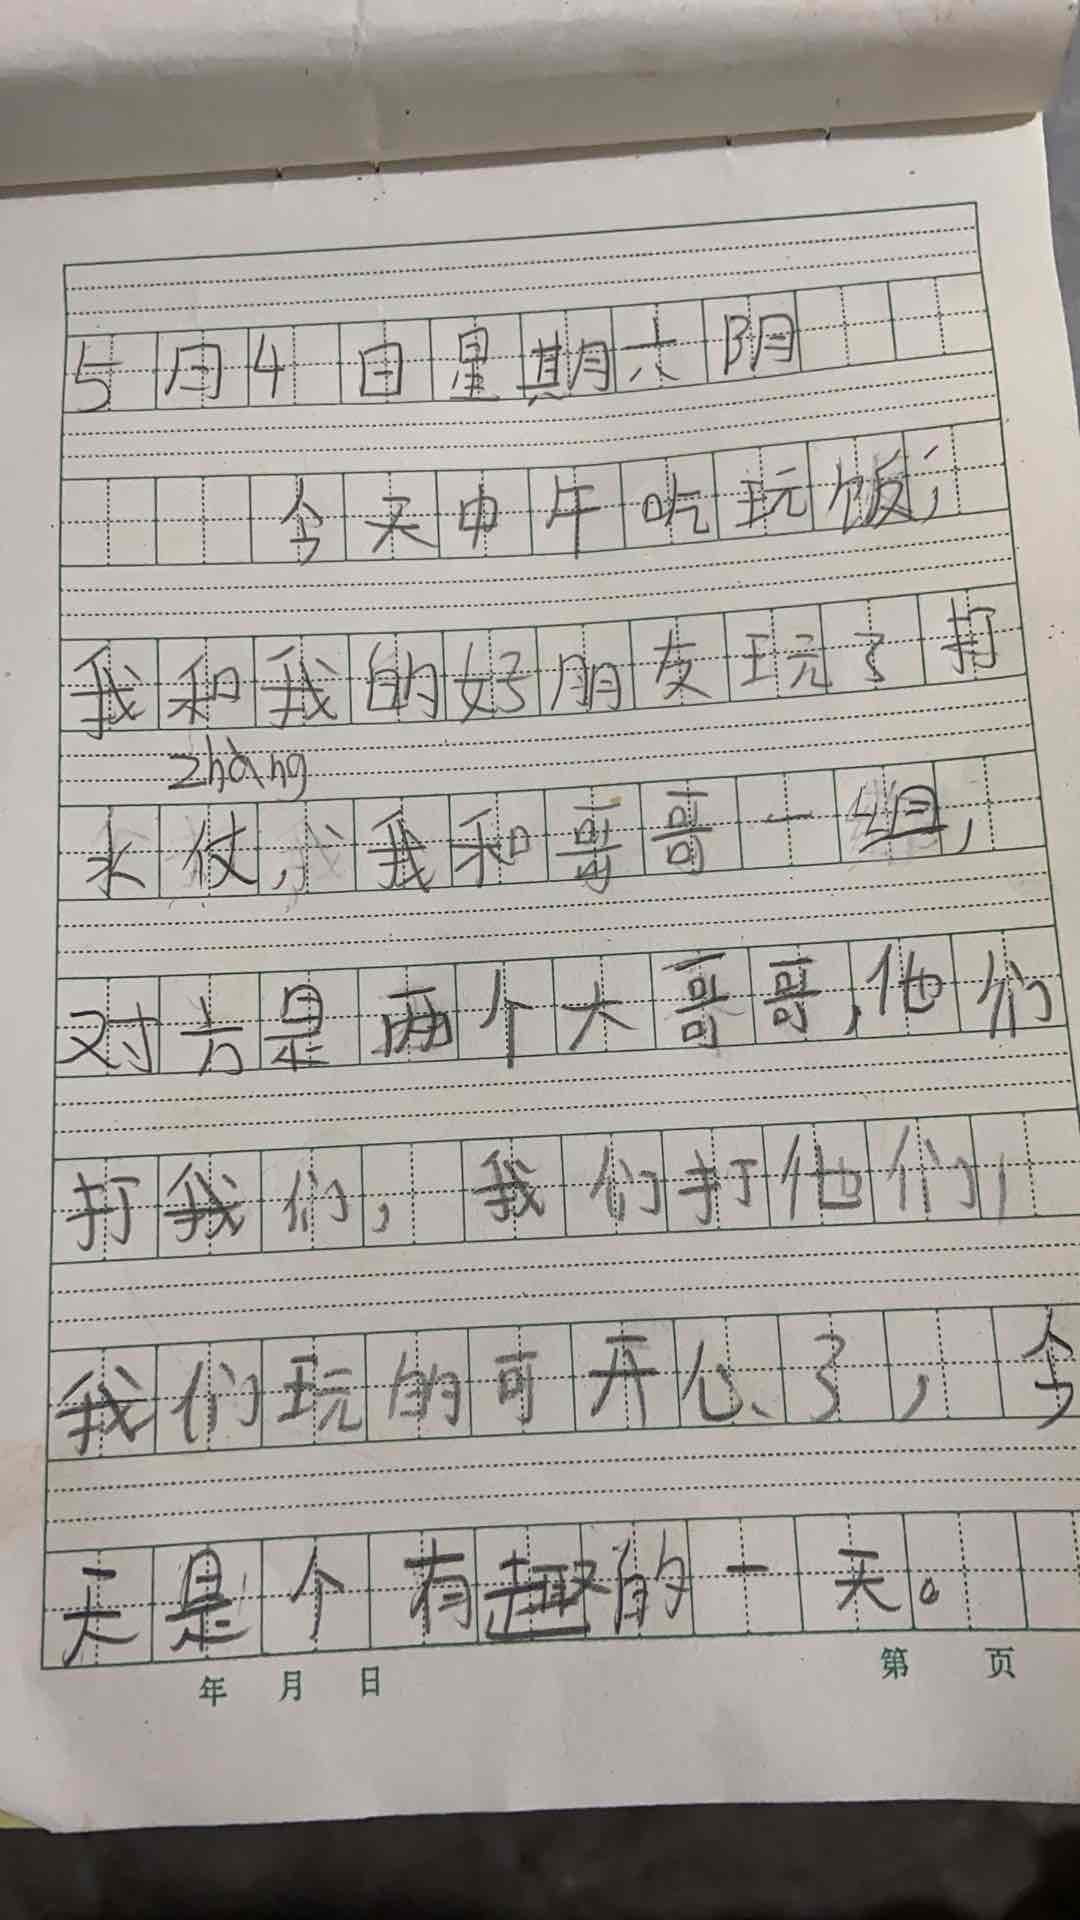 5月4日星期六阴
今天中午吃玩饭,
我和我的好朋友玩了打
zhàng
水仗,我和哥哥一组,
对方是两个大哥哥,他们
打我们,我们打他们,
我们玩的可开心了,今
天是个有趣的一天。
年 月 日 第 页